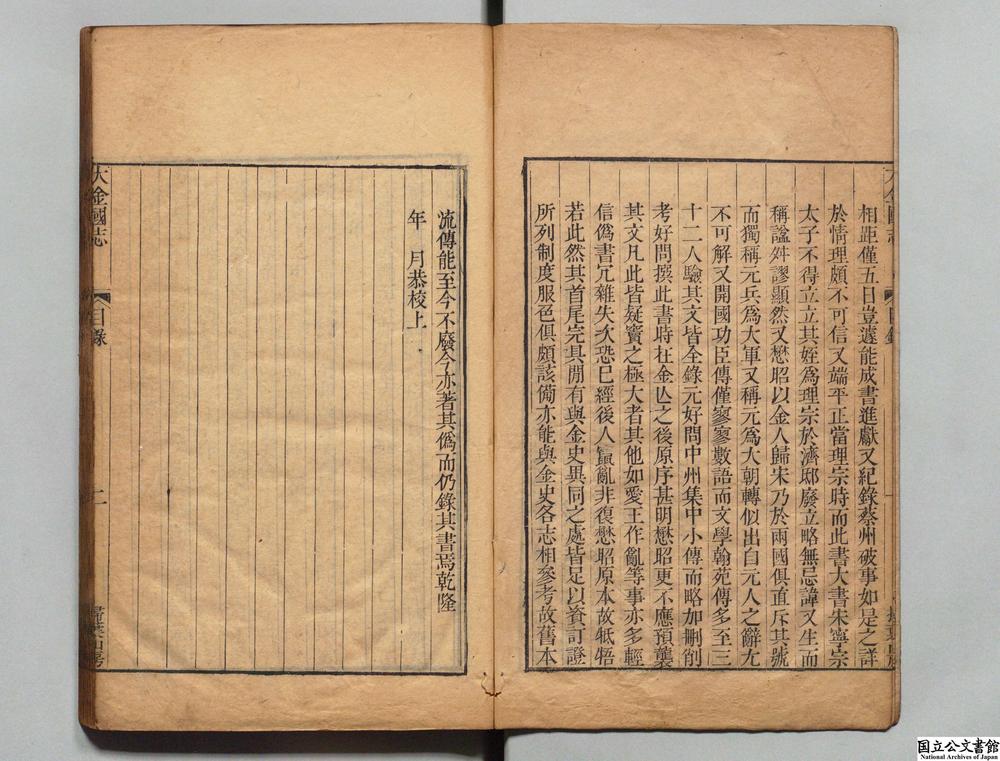 相距僅五日豈遽能成書進獻又紀錄蔡州破事如是之詳
於情理頗不可信又端平正當理宗時而此書大書宋寧宗
太子不得立立其姪爲理宗於濟邸廢立略無忌諱又生而
稱諡舛謬顯然又懋昭以金人歸宋乃於兩國俱直斥其號
而獨稱元兵爲大軍又稱元爲大朝轉似出自元人之辭尤
不可解又開國功臣傳僅寥寥數語而文學翰苑傳多至三
十二人驗其文皆全錄元好問中州集中小傳而略加刪削
考好問撰此書時在金亾之後原序甚明懋昭更不應預襲
其文凡此皆疑竇之極大者其他如愛王作亂等事亦多輕
信僞書冗雜失次恐已經後人竄亂非復懋昭原本故牴牾
若此然其首尾完具閒有與金史異同之處皆足以資訂證
所列制度服色俱頗該備亦能與金史各志相參考故舊本
流傳能至今不廢今亦著其僞而仍錄其書焉乾隆
年 月恭校上
大金國志
目錄
二
掃葉山房
国立公文書館
National Archives of Japan